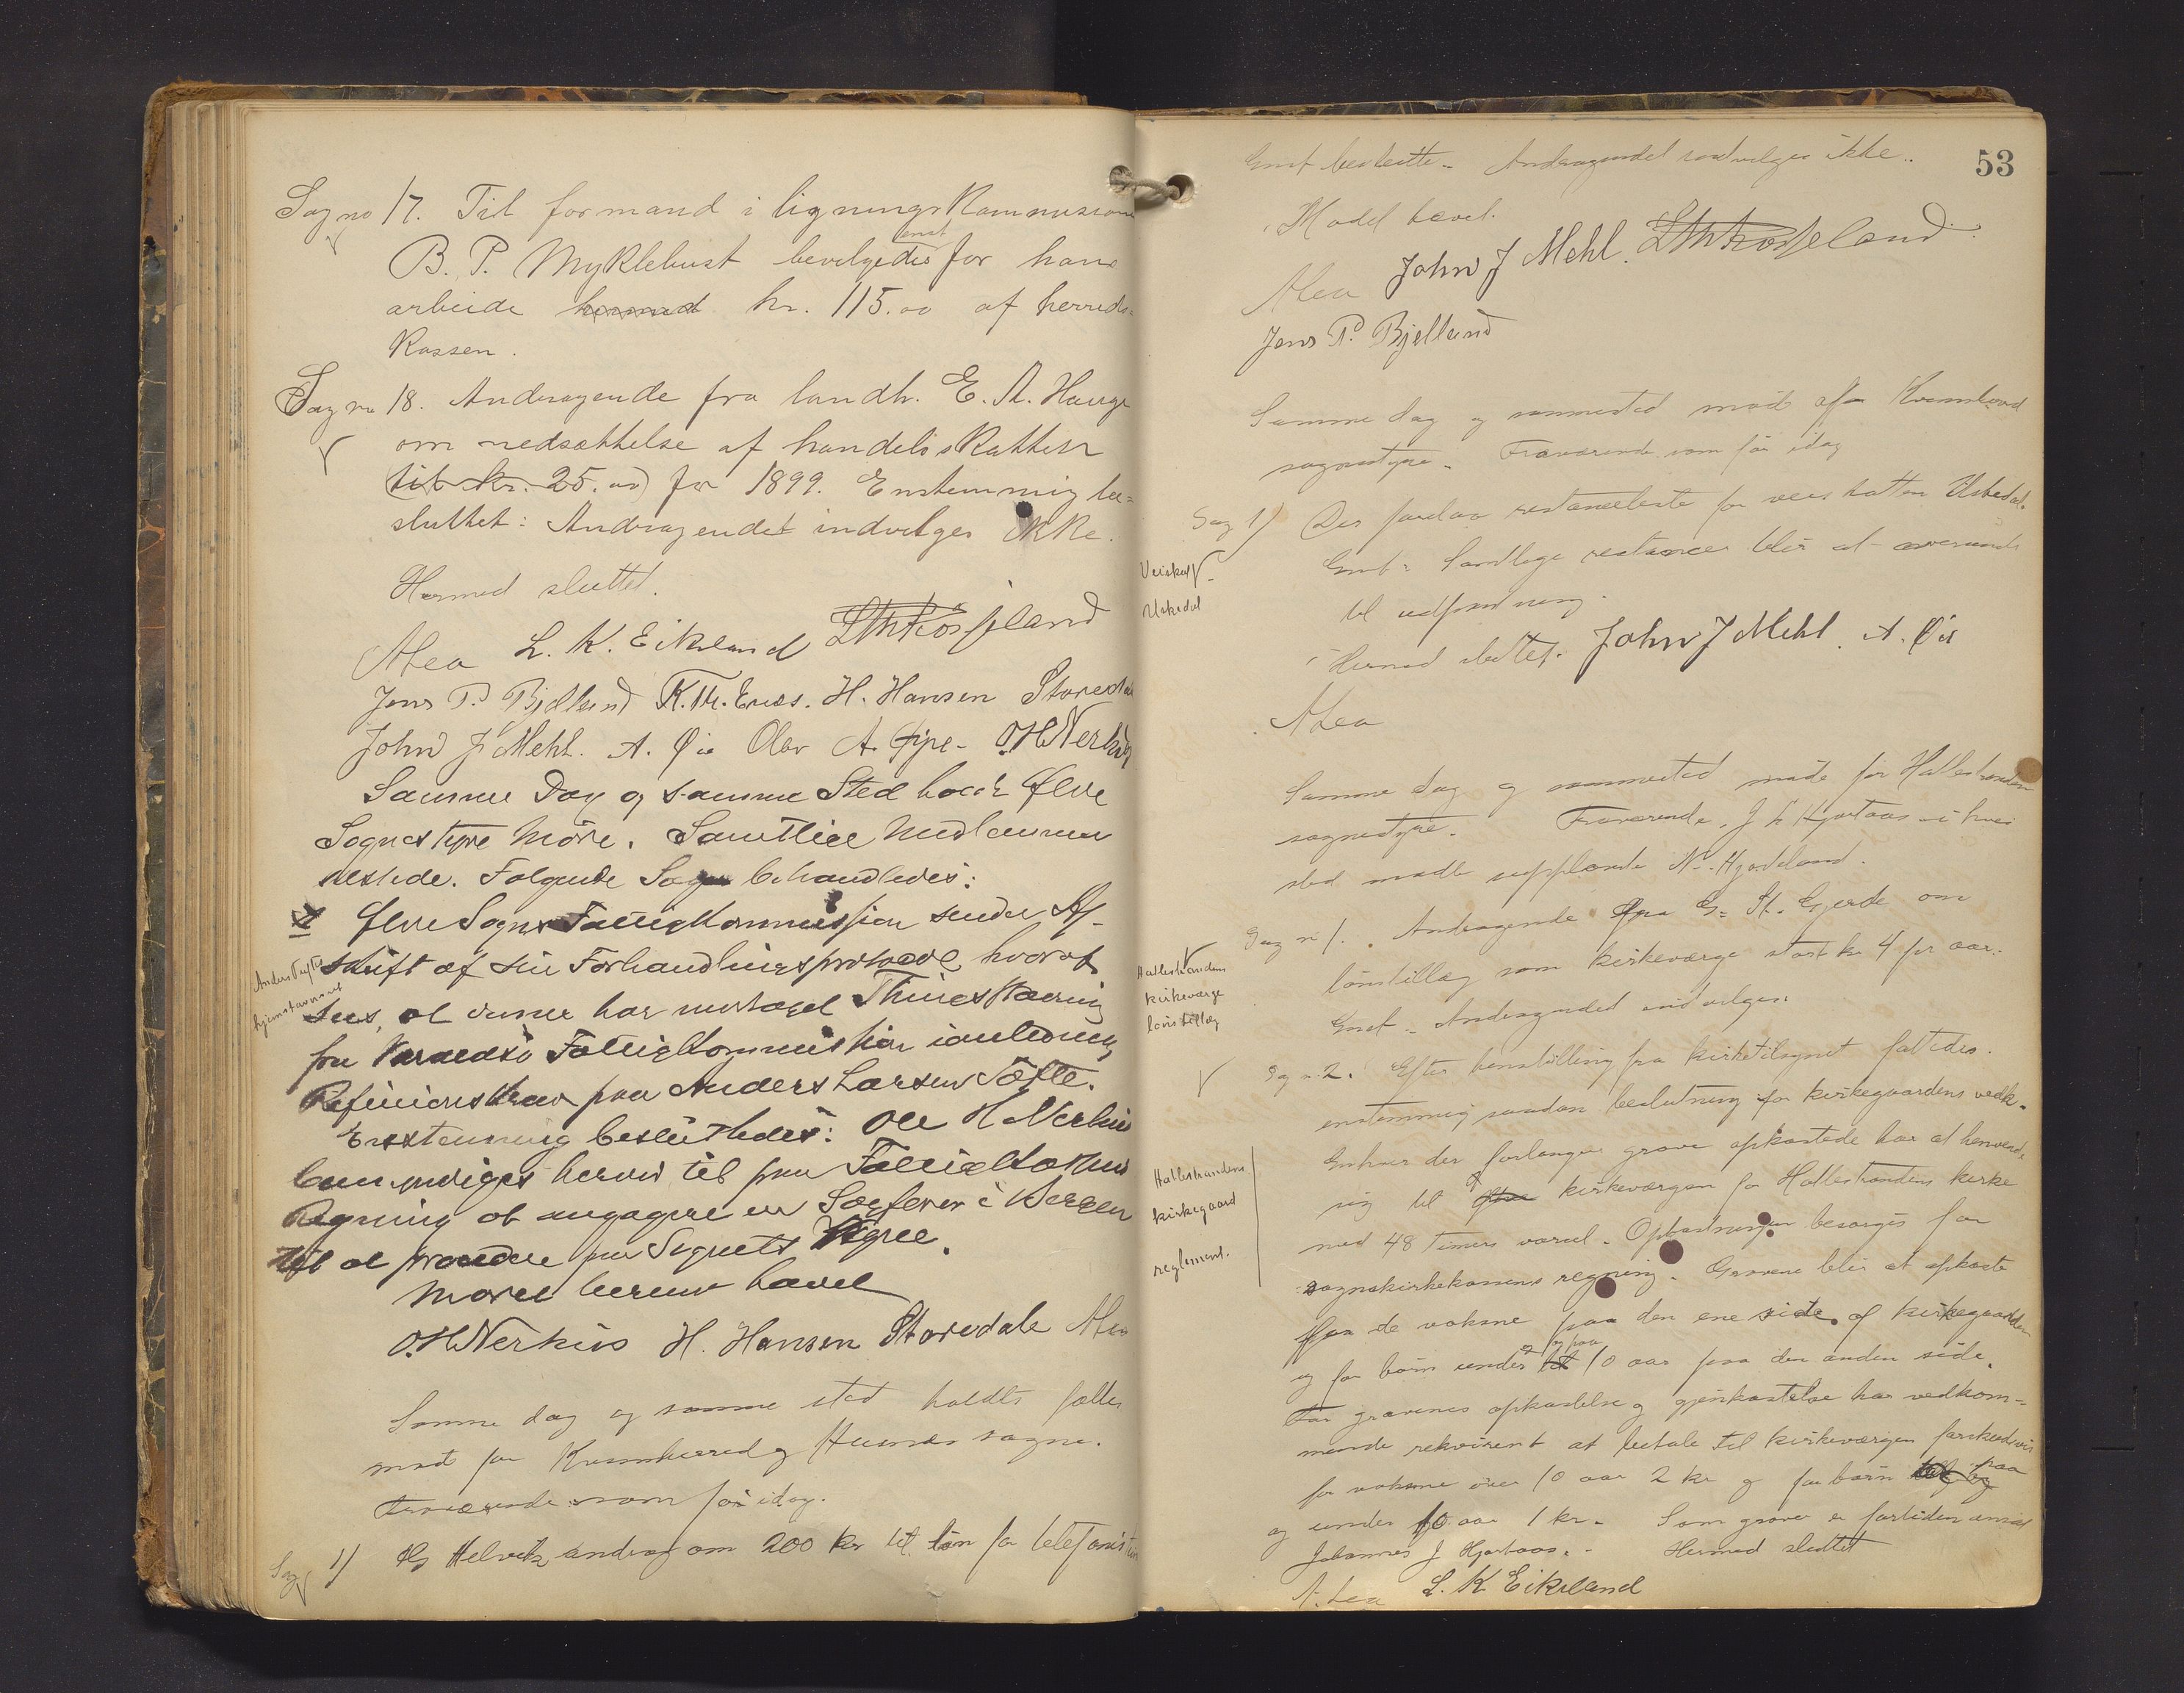 Sag no 17. Til formand i ligningskommissionen
B. P. Myklebust bevilgedes enst for hans
arbeide kr. 115.00 af herreds-
kassen.
Sag no 18. Andragende fra landh. E. A. Hauge
om nedsættelse af handelsskatten
til kr. 25.00 for 1899. Enstemmig be-
sluttet: Andragendet indvilges ikke.
Hermed sluttet.
ALea L. K. Eikeland
Jens P. Bjelland K. Th. Enes. H. Hansen Storedale
John J Mehl. A. Øie Olav A. Gjpe. O.H.Nerhus
Samme Dag og samme Sted holdt Ølve
Sognestyre Møde. Samtlige Medlemmer
tilstede. Følgende Sag behandledes:
1 Ølve Sogns Fattigkommission sender Af-
Anders Tofte
hjemstavnsret
skrift af sin Forhandlingsprotocol hvoraf
sees, at denne har modtaget
fra Varaldsø Fattigkommission ianledning
Refusionskrav paa Anders Larsen Tofte.
Enstemmig besluttedes: Ole H Nerhus
bemyndiges herved til paa Fattigkasens
Regning at engagere en Sagfører i Bergen
til at procedere paa Sognets Vegne.
Mødet herved hævet
O.H.Nerhus H. Hansen Storedale ALea
Samme dag og samme sted holdtes fælles
mød for Kvinnherred og Husnes sogne.
Fraværende som før idag.
Sag 1) andrag om 200 kr til løn for telefonist
53
Enst besluttet. Andragendet indvilges ikke.
Mødet hævet.
ALea John J Mehl.
Jens P. Bjelland
Samme dag og sammested mød af Kvinnherred
sognestyre. Fraværende som før idag
Sag 1) Der forelaa restanceliste for veiskatten Uskedal.
Enst: Samtlige restancer blir at oversende
Veiskat
Uskedal
til udpantning.
Hermed sluttet. John J Mehl. A. Øie
ALea
Samme dag og sammested møde for Hatlestrandens
sognestyre. Fraværende J Hjortaas i hvis
sted mødte supplanten N. Hjerdeland.
Sag no 1. Andragende fra G. St. Gjerde om
Hatlestrandens
kirkeværge
lønstillæg
lønstillæg som kirkeværge stort kr 4 pr aar.
Enst. Andragendet indvilges.
Sag no 2. Efter henstilling fra kirketilsynet fattedes
enstemmig saadan beslutning for kirkegaardens vedk.
Enhver der forlanger grave opkastede har at henvende
Hatlestrandens
kirkegaard
reglement.
sig til kirkeværgen for Hatlestrandens kirke
med 48 timers varsel. Opkastningen besørges for
sognekirkekassens regning. Gravene blir at opkaste
for de voksne paa den ene side af kirkegaarden
og for børn under og paa 10 aar paa den anden side.
For gravenes opkastelse og gjenkastelse har vedkom-
mende rekvirent at betale til kirkeværgen forskudsvis
for voksne over 10 aar 2 kr og for børn paa
og under 10 aar 1 kr. Som graver er fortiden ansat
Johannes J Hjortaas. Hermed sluttet
A. Lea L. K Eikeland